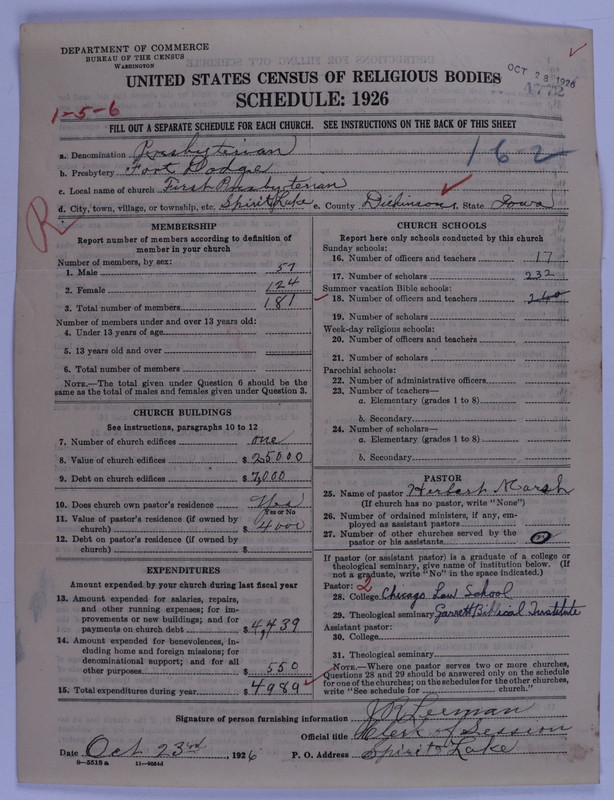 DEPARTMENT OF COMMERCE
BUREAU OF THE CENSUS
WASHINGTON
OCT 28 1926
UNITED STATES CENSUS OF RELIGIOUS BODIES
SCHEDULE: 1926
1-5-6
FILL OUT A SEPARATE SCHEDULE FOR EACH CHURCH. SEE INSTRUCTIONS ON THE BACK OF THIS SHEET
162
a. Denomination Presbyterian
b. Presbytery Fort Dodge
c. Local name of church First Presbyterian
d. City, town, village, or township, etc. Spirit Lake e. County Dickinson f. State Iowa
R
MEMBERSHIP
Report number of members according to definition of
member in your church
Number of members, by sex:
1. Male 57
2. Female 124
3. Total number of members 181
Number of members under and over 13 years old:
4. Under 13 years of age
5. 13 years old and over
6. Total number of members
NOTE.—The total given under Question 6 should be
same as the total of males and females given under Question 3.
CHURCH BUILDINGS
See instructions, paragraphs 10 to 12
7. Number of church edifices one
8. Value of church edifices $ 25000
9. Debt on church edifices $ 7,000
10. Does church own pastor's residence Yes
Yes or No
11. Value of pastor's residence (if owned by
church) $ 4000
12. Debt on pastor's residence (if owned by
church) $
EXPENDITURES
Amount expended by your church during last fiscal year
13. Amount expended for salaries, repairs,
and other running expenses; for im-
provements or new buildings; and for
payments on church debt $ 4,439
14. Amount expended for benevolences, in-
cluding home and foreign missions; for
denominational support; and for all
other purposes $ 550
15. Total expenditures during year $ 4989
CHURCH SCHOOLS
Report here only schools conducted by this church
Sunday schools:
16. Number of officers and teachers 17
17. Number of scholars 232
Summer vacation Bible schools:
18. Number of officers and teachers 240
19. Number of scholars
Week-day religious schools:
20. Number of officers and teachers
21. Number of scholars
Parochial schools:
22. Number of administrative officers
23. Number of teachers—
a. Elementary (grades 1 to 8)
b. Secondary
24. Number of scholars—
a. Elementary (grades 1 to 8)
b. Secondary
PASTOR
25. Name of pastor Herbert Marsh
(If church has no pastor, write "None")
26. Number of ordained ministers, if any, em-
ployed as assistant pastors
27. Number of other churches served by the
pastor or his assistants
If pastor (or assistant pastor) is a graduate of a college or
theological seminary, give name of institution below. (If
not a graduate, write "No" in the space indicated.)
Pastor: 2
28. College Chicago Law School
29. Theological seminary Garrett Biblical Institute
Assistant pastor:
30. College
31. Theological seminary
NOTE.—Where one pastor serves two or more churches,
Questions 28 and 29 should be answered only on the schedule
for one of the churches; on the schedules for the other churches,
write "See schedule for church."
Signature of person furnishing information J R Leeman
Official title Clerk of Session
Date Oct 23rd, 1926 P. O. Address Spirit Lake
8-5518a